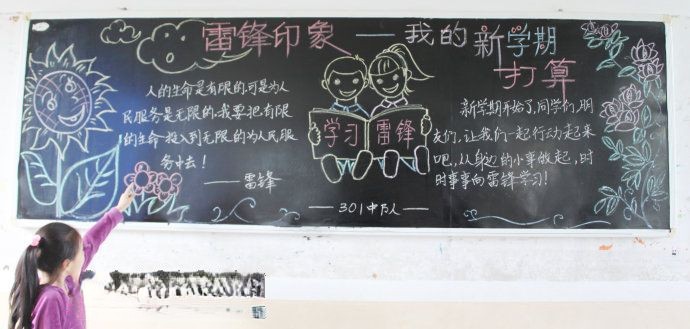 雷锋印象——我的新学期
打算
人的生命是有限的,可是为人
民服务是无限的,我要把有限
的生命,投入到无限的为人民服
务中去!
——雷锋
学习雷锋
新学期开始了,同学们,朋
友们,让我们一起行动起来
吧,从身边的小事做起,时
时事事向雷锋学习!
—301中队—